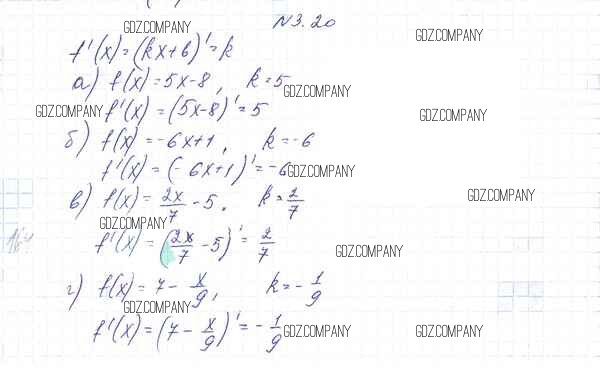 N3.20
GDZ.COMPANY
GDZ.COMPANY
f'(x)=(kx+b)'=k
а) f(x)=5x-8, k=5
GDZ.COMPANY
GDZ.COMPANY f'(x)=(5x-8)'=5
GDZ.COMPANY
б) f(x)=-6x+1, k=-6
f'(x)=(-6x+1)'=-6
GDZ.COMPANY
в) f(x)=2x/7-5. k=2/7
GDZ.COMPANY
GDZ.COMPANY
f'(x)=(2x/7-5)'=2/7
GDZ.COMPANY
г) f(x)=7-x/9, k=-1/9
GDZ.COMPANY
GDZ.COMPANY
f'(x)=(7-x/9)'=-1/9
GDZ.COMPANY
GDZ.COMPANY